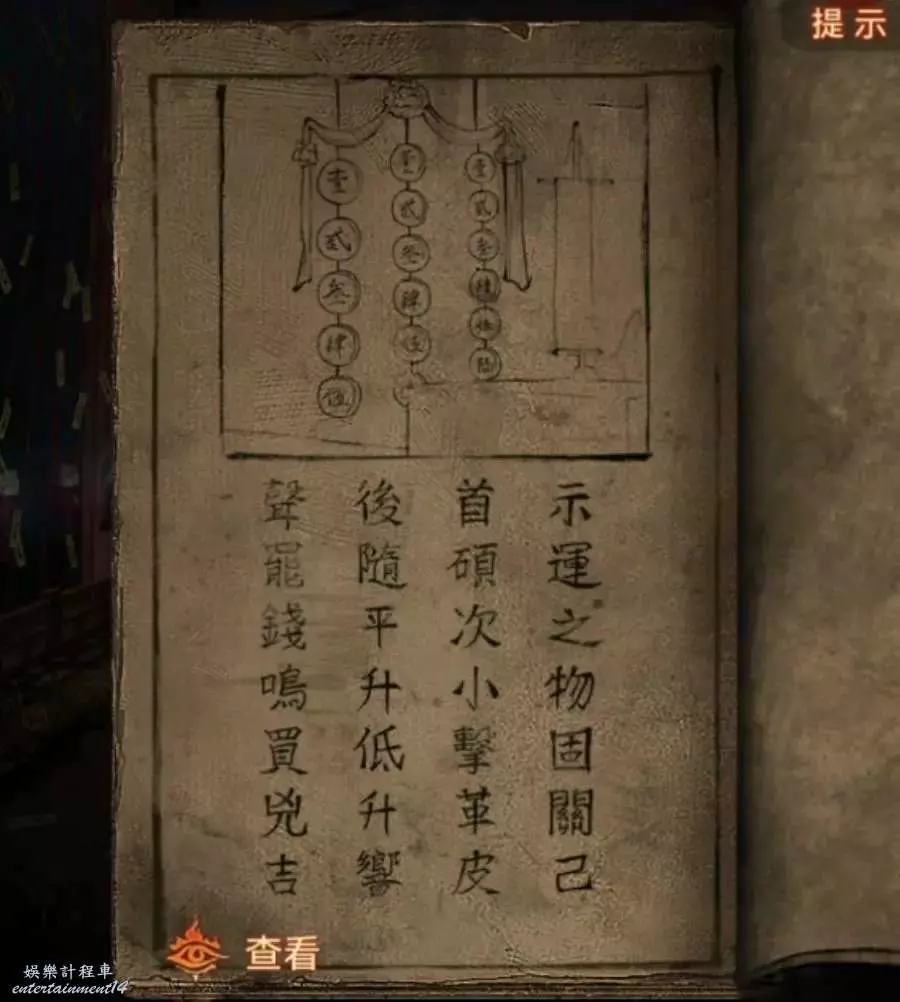 提示
壹貳叁肆伍陸
壹貳叁肆伍
壹貳叁肆伍
示運之物固關己
首碩次小擊革皮
後隨平升低升響
聲罷錢鳴買兇吉
查看
娛樂計程車
entertainment14